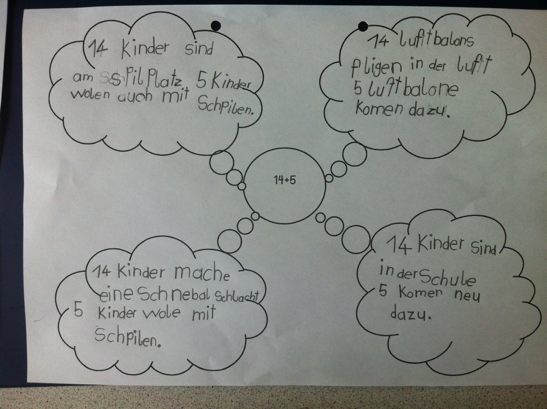 14 Kinder sind
am SSPilPlatz 5 Kinder
wolen auch mit Schpilen.
14 luftbalons
fligen in der luft
5 luftbalone
komen dazu.
14+5
14 Kinder mache
eine Schnebal Schlacht
5 Kinder wole mit
Schpilen.
14 Kinder sind
in der Schule
5 Komen neu
dazu.